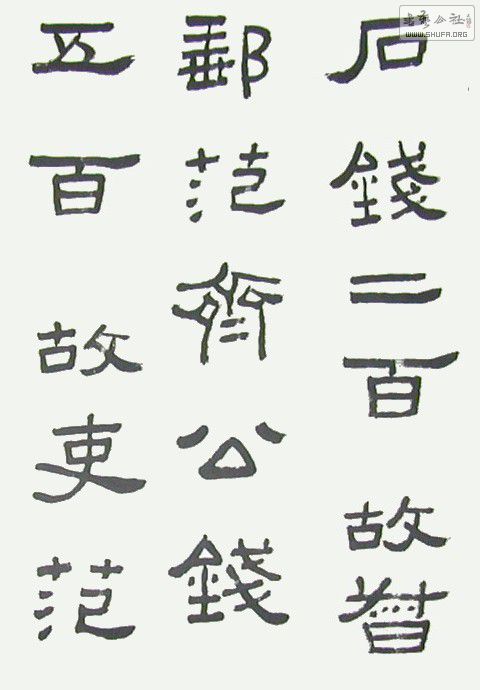 石錢二百 故督
郵范齊公錢
五百 故吏范
WWW.SHUFA.ORG